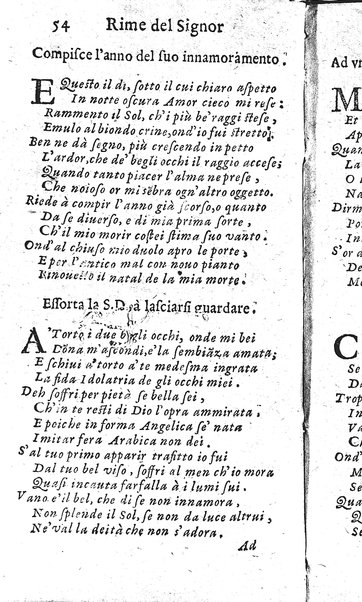 54 Rime del Signor
Compisce l'anno del suo innamoramento.
EQuesto il dì, sotto il cui chiaro aspetto
In notte oscura Amor cieco mi rese:
Rammento il Sol, ch'i più be' raggi stese,
Emulo al biondo crine, ond'io fui stretto;
Ben ne dà segno, più crescendo in petto
L'ardor, che de' begli occhi il raggio accese;
Quando tanto piacer l'alma ne prese,
Che noioso or mi sēbra ogn'altro oggetto.
Riede à compir l'anno già scorso, o quanto
Da se diverso, e di mia prima sorte,
Ch'il mio morir costei stima suo vanto.
Ond'al chiuso mio duolo apro le porte,
E per l'antico mal con novo pianto
Rinovello il natal de la mia morte.
Essorta la S. D. à lasciarsi guardare.
A Torto i due begli occhi, onde mi bei
Dōna m'ascondi, e'la sembiāza amata;
E schivi a torto a te medesma ingrata
La fida Idolatria de gli occhi miei.
Deh soffri per pietà se bella sei,
Ch'in te resti di Dio l'opra ammirata.
E poiche in forma Angelica se' nata
Imitar fera Arabica non dei.
S'al tuo primo apparir trafitto io fui
Dal tuo bel viso, soffri al men ch'io mora
Quasi incauta farfalla à i lumi sui.
Vano e'il bel, che di se non innamora,
Non splende il Sol, se non da luce altrui,
Ne'val la deità che non s'adora.
Ad
Ad v
M
Et
A
Quan
La
O l
N
Dirm
Po
In
S'or a
De
M
C
Se
D
Trop
In
Va
C
Quan
Qu
Se